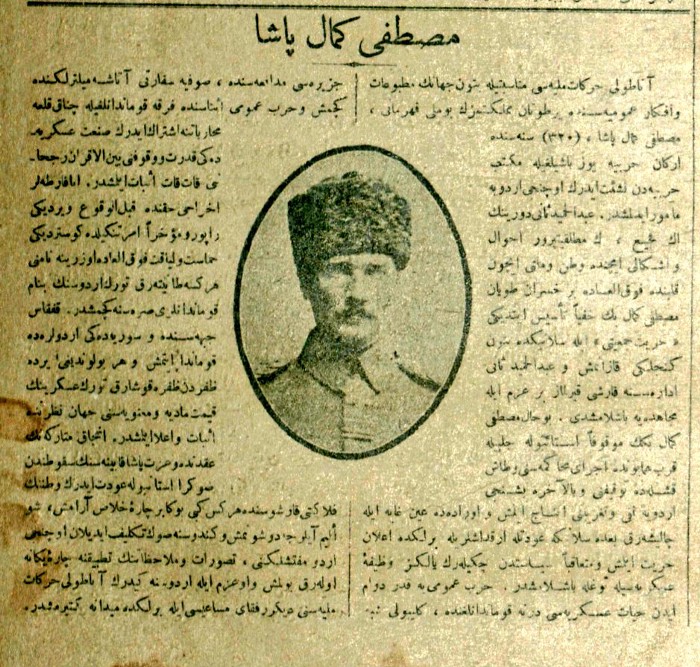 مصطفى كمال پاشا
آناطولی حركات ملیه‌سی مناسبتیله بتون جهانك مطبوعات
وافكار عمومیه‌سنده یر طوتان مملكتمزك بو ملی قهرمانی ،
مصطفی كمال پاشا ، (۳۲۰) سنه‌سنده
اركان حربیه یوز باشیلغیله مكتب
حربیه‌دن نشئت ایدرك اوچنجی اردویه
مأمور ایدلمشدر . عبدالحمید ثانی دورینك
اك فجیع ، اك مظلم‌پرور احوال
و اشكالی ایچنده وطن وملتی ایچون
قلبنده فوق‌العاده بر خسران طویان
مصطفی كمال بك خفیاً تأسیس ایتدیكی
« حریت جمعیتی » ایله سلانیكده بتون
كنجلكی قازانمش و عبدالحمید ثانی
اداره‌سنه قارشی قیرلماز بر عزم ایله
مجاهده‌یه باشلامشدی . بو حال مصطفی
كمال بكك موقوفاً استانبوله جلبله
قرب همایونده اجرای محاكمه‌سنی وطاش
قشله‌ده توقیفنی وبالآخره بشنجی
اردویه نفی وتغریبنی انتاج ایتمش و اوراده‌ده عین غایه ایله
چالیشه‌رق بعده سلانیكه عودتله آرقداشلریله برلكده اعلان
حریت ایتمش ومتعاقباً سیاستدن چكیله‌رك یالكز وظیفهٔ
عسكریه‌سیله توغله باشلامشدر . حرب عمومی‌یه قدر دوام
ایدن حیات عسكریه‌سی درنه قوماندانلغنده ، كلیبولی شبه
جزیره‌سی مدافعه‌سنده ، صوفیه سفارتی آتاشه میلترلكنده
كچمش وحرب عمومی اثناسنده فرقه قوماندانلغیله چناق قلعه
محارباتنه اشتراك ایدرك صنعت عسكریه
ده‌كی قدرت ووقوفنی بین‌الاقران رجحا-
نی قات قات اثبات ایلمشدر . انافارطه‌لر
اخراجی حقنده قبل‌الوقوع ویردیكی
راپور ومؤخراً امر تشكیلده كوستردیكی
حماست ولیاقت فوق‌العاده اوزرینه نامنی
هركسه طانیته‌رق تورك اردوسنك بنام
قوماندانلری صره‌سنه كچمشدر . قفقاس
جبهه‌سنده و سوریه‌ده‌كی اردولرده
قوماندانلق ایتمش و هر بولوندیغی یرده
ظفردن ظفره قوشارق تورك عسكرینك
قیمت مادیه ومعنویه‌سنی جهان نظرنده
اثبات و اعلا ایلمشدر . انجاق متاركه‌نك
عقدنده وعزت پاشا قابینه‌سنك سقوطندن
صوكرا استانبوله عودت ایدرك وطننك
فلاكتی قارشوسنده هركس كبی بوكا بر چارهٔ خلاص آرامش ، شو
الیم آیلرجه دوشونمش وكندوسنه صوك تكلیف ایدیلان اوچنجی
اردو مفتشلكنی ، تصورات وملاحظاتنك تطبیقنه چارهٔ یكانه
اوله‌رق بولمش واو عزم ایله اردوسنه كیدرك آناطولی حركات
ملیه‌سنی دیكر رفقای مساعیسی ایله برلكده میدانه كتیرمشدر .